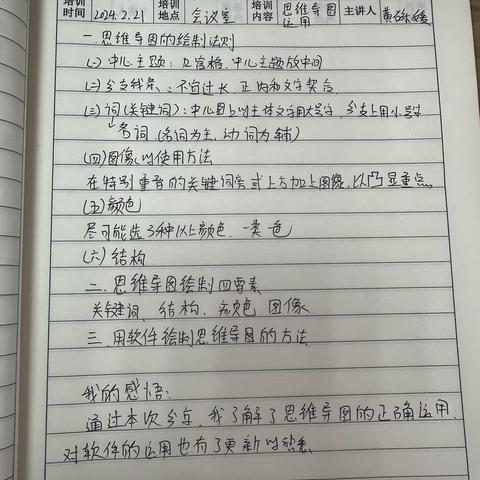 培训时间 2024.2.21 培训地点 会议室 培训内容 思维导图运用 主讲人 黄
一.思维导图的绘制法则
(一)中心主题:九宫格,中心主题放中间
(二)分支线条:不宜过长,正为和文字契合
(三)词(关键词):中心图上以主体文字用大号字,分支上用小号字
名词(名词为主,动词为辅)
(四)图像的使用方法
在特别重要的关键词旁或上方加上图像,以凸显重点。
(五)颜色
尽可能选3种以上颜色.一类一色
(六)结构
二.思维导图绘制四要素
关键词、结构、颜色 图像
三.用软件绘制思维导图的方法
我的感悟:
通过本次分享,我了解了思维导图的正确运用,
对软件的运用也有了更新的熟悉